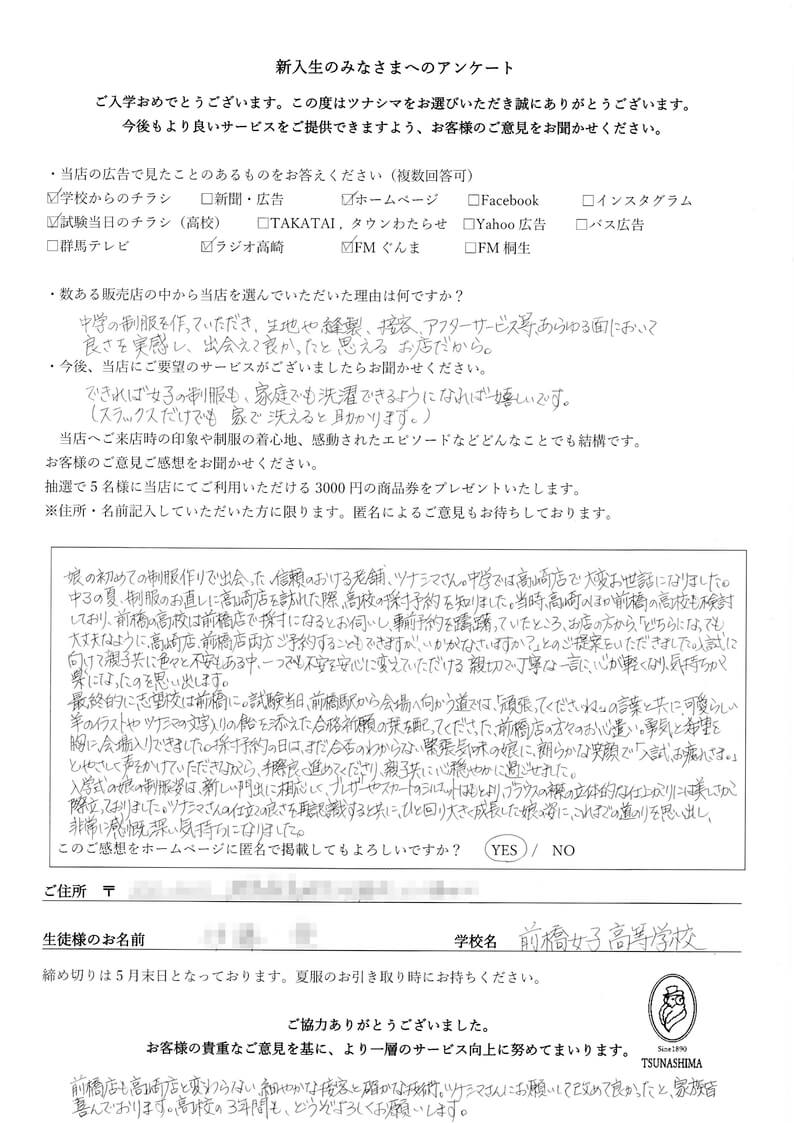 新入生のみなさまへのアンケート
ご入学おめでとうございます。この度はツナシマをお選びいただき誠にありがとうございます。
今後もより良いサービスをご提供できますよう、お客様のご意見をお聞かせください。
・当店の広告で見たことのあるものをお答えください（複数回答可）
☑学校からのチラシ □新聞・広告 ☑ホームページ □Facebook □インスタグラム
☑試験当日のチラシ（高校） □TAKATAI , タウンわたらせ □Yahoo 広告 □バス広告
□群馬テレビ ☑ラジオ高崎 ☑FM ぐんま □FM 桐生
・数ある販売店の中から当店を選んでいただいた理由は何ですか？
中学の制服を作っていただき、生地や縫製、接客、アフターサービス等、あらゆる面において
良さを実感し、出会えて良かったと思えるお店だから。
・今後、当店にご要望のサービスがございましたらお聞かせください。
できれば女子の制服も、家庭でも洗濯できるようになれば嬉しいです。
（スラックスだけでも家で洗えると助かります。）
当店へご来店時の印象や制服の着心地、感動されたエピソードなどどんなことでも結構です。
お客様のご意見ご感想をお聞かせください。
抽選で 5 名様に当店にてご利用いただける 3000 円の商品券をプレゼントいたします。
※住所・名前記入していただいた方に限ります。匿名によるご意見もお待ちしております。
娘の初めての制服作りで出会った、信頼のおける老舗、ツナシマさん。中学では高崎店で大変お世話になりました。
中3の夏、制服のお直しに高崎店を訪れた際、高校の採寸予約を知りました。当時、高崎のほか前橋の高校も検討
しており、前橋の高校は前橋店で採寸になるとお伺いし、事前予約を躊躇っていたところ、お店の方から「どちらになっても
大丈夫なように、高崎店、前橋店両方ご予約することもできますが、いかがなさいますか？」とのご提案をいただきました。入試に
向けて親子共に色々と不安もある中、一つでも不安を安心に変えていただける親切で丁寧な一言に、心が軽くなり、気持ちが
楽になったのを思い出します。
最終的に志望校は前橋に。試験当日、前橋駅から会場へ向かう道では、「頑張ってくださいね。」の言葉と共に可愛らしい
羊のイラストやツナシマの文字入りの飴を添えた合格祈願の栞を配ってくださった、前橋店の方々のお心遣い。勇気と希望を
胸に、会場入りできました。採寸予約の日は、まだ合否のわからない緊張気味の娘に、朗らかな笑顔で「入試、お疲れさま。」
とやさしく声をかけていただきながら、手際良く進めてくださり、親子共に心穏やかに過ごせました。
入学式の娘の制服姿は、新しい門出に相応しく、ブレザーやスカートのシルエットはもとより、ブラウスの襟の立体的な仕上がりには美しさが
際立っておりました。ツナシマさんの仕立の良さを再認識すると共に、ひと回り大きく成長した娘の姿に、これまでの道のりを思い出し、
非常に感慨深い気持ちになりました。
このご感想をホームページに匿名で掲載してもよろしいですか？ YES / NO
ご住所 〒
生徒様のお名前 学校名 前橋女子高等学校
締め切りは 5 月末日となっております。夏服のお引き取り時にお持ちください。
ご協力ありがとうございました。
お客様の貴重なご意見を基に、より一層のサービス向上に努めてまいります。
Sine1890
TSUNASHIMA
前橋店も高崎店と変わらない細やかな接客と確かな技術。ツナシマさんにお願いして改めて良かったと、家族皆
喜んでおります。高校の3年間も、どうぞよろしくお願いします。